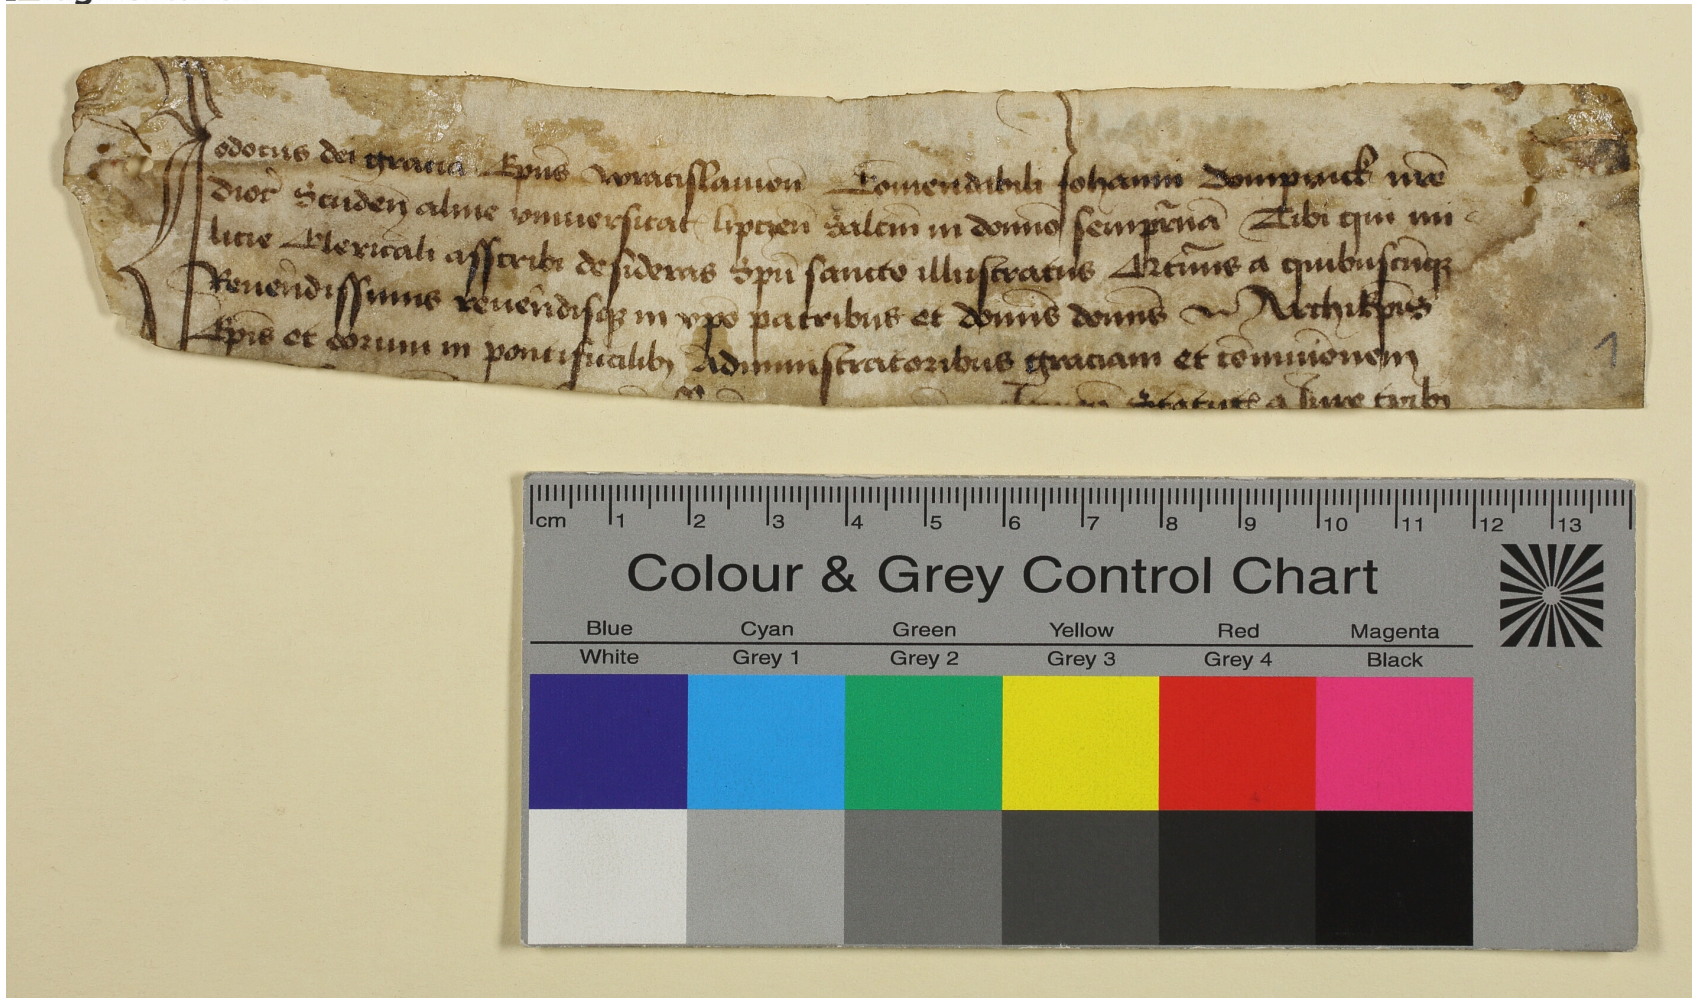 Jodocus dei gracia Epūs wratislauien̄ Comendibili Johanni Dompnick nrē
dioc̄ Studen̄ alme vniuersitat̄ lipczen̄ Salut̄m in domino sempit̄nā Tibi qui mi-
licie Clericali asscribi desideras Spū sancto illustratus
Reuerēdissimis reuerēdisqꝫ in xpō patribus et domīs domīs N Archiep̄is
Ep̄is et eorum in pontificalibꝫ Administratoribus graciam et cōmunionem
Statut̄ a Jure
1
cm 1 2 3 4 5 6 7 8 9 10 11 12 13
Colour & Grey Control Chart
Blue Cyan Green Yellow Red Magenta
White Grey 1 Grey 2 Grey 3 Grey 4 Black